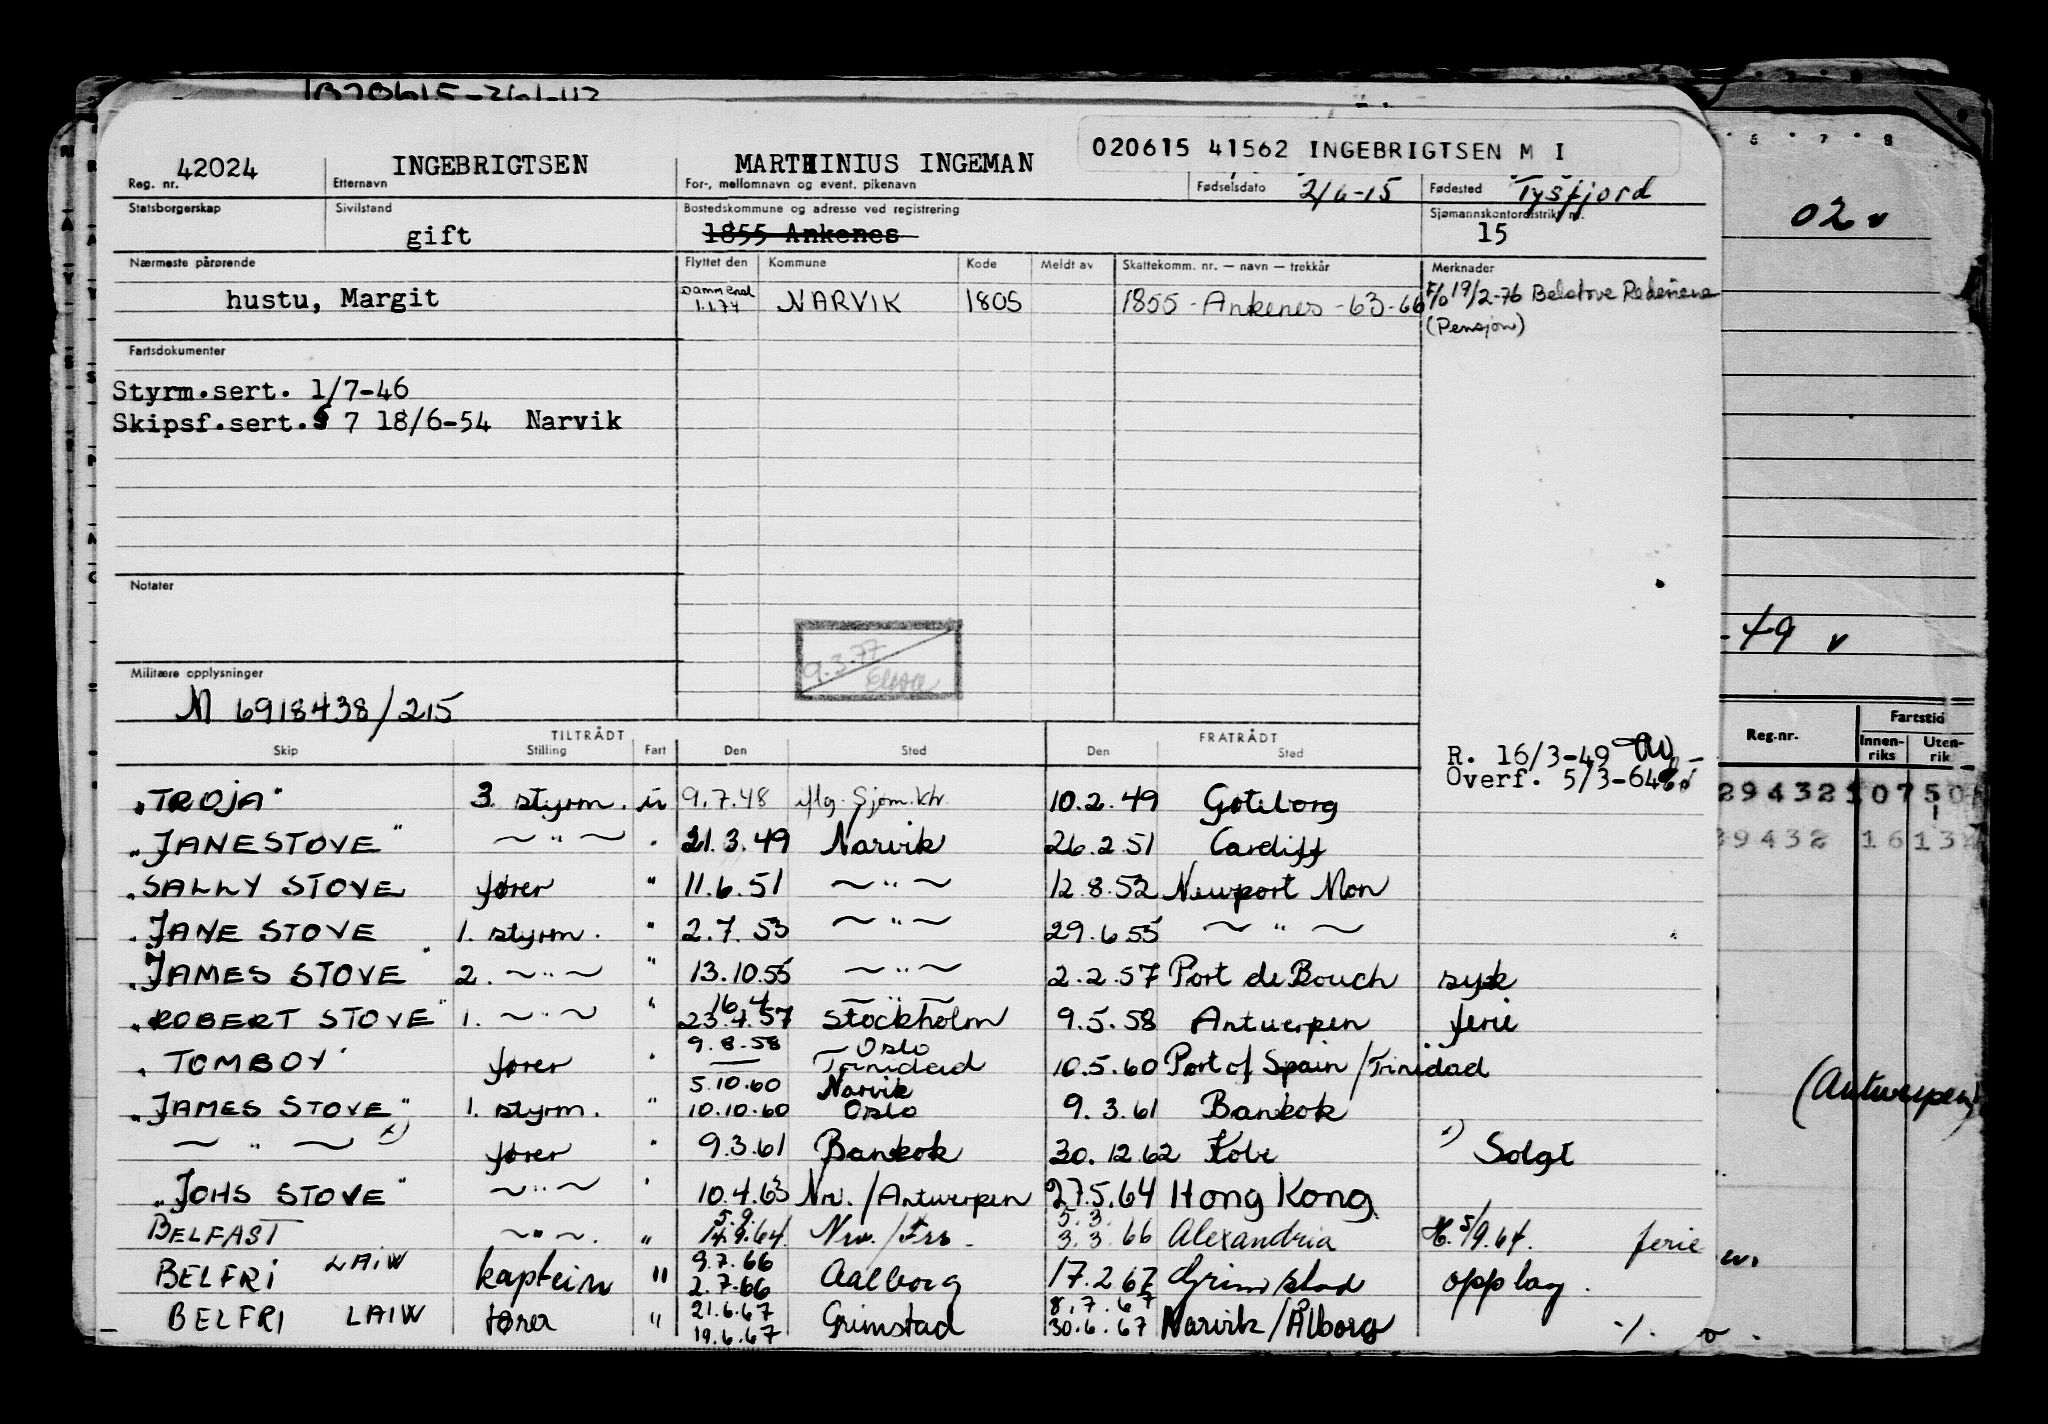 020615 41562 INGEBRIGTSEN M I
42024 INGEBRIGTSEN MARTHINIUS INGEMAN
Reg. nr. Etternavn For-, mellomnavn og event. pikenavn Fødselsdato 2/6-15 Fødested Tysfjord
Statsborgerskap Sivilstand Bostedskommune og adresse ved registrering Sjømannskontordistrikt nr.
gift 1855 Ankenes 15
02 v
Nærmeste pårørende Flyttet den Kommune Kode Meldt av Skattekomm. nr. — navn — trekkår Merknader
hustu, Margit 1.1.74 NARVIK 1805 1855 - Ankenes - 63-66 19/2-76 Belstove Rederiene
(Pensjon)
Fartsdokumenter
Styrm.sert. 1/7-46
Skipsf.sert.§ 7 18/6-54 Narvik
Notater
9.3.77
-49 v
Militære opplysninger
N 6918438/215
TILTRÅDT FRATRÅDT
Skip Stilling Fart Den Sted Den Sted
R. 16/3-49
Overf. 5/3-64
Reg.nr. Fartstid
Innen-riks Uten-rik
"TROJA" 3. styrm. u 9.7.48 iflg. Sjøm.ktr. 10.2.49 Gøteborg
"JANESTOVE" ~ " ~ " 21.3.49 Narvik 26.2.51 Cardiff
"SALLY STOVE fører " 11.6.51 ~ " ~ 12.8.52 Newport Mon
"JANE STOVE 1. styrm. " 2.7.53 ~ " ~ 29.6.55 ~ " ~
"JAMES STOVE" 2. ~ " ~ " 13.10.55 ~ " ~ 2.2.57 Port de Bouch syk
16.4
"ROBERT STOVE" 1. ~ " ~ " 23.4.57 Stockholm 9.5.58 Antwerpen ferie
9.8.58 Oslo
"TOMBOY" fører " — Trinidad 10.5.60 Port of Spain/Trinidad
5.10.60 Narvik
"JAMES STOVE" 1. styrm. " 10.10.60 Oslo 9.3.61 Bankok
(Antwerpen)
~ " ~ x) fører " 9.3.61 Bankok 30.12.62 Kobe x) Solgt
"JOHS STOVE" ~ " ~ " 10.4.63 Nrv./Antwerpen 27.5.64 Hong Kong
5.9. 5.3.
BELFAST ~ " ~. " 14.9.64. Nrv./Frs. 3.3.66 Alexandria 5/9.64. ferie
9.7.66
BELFRI LAIW kaptein " 2.7.66 Aalborg 17.2.67 Grimstad opplag.
21.6.67 8.7.67
BELFRI LAIW fører " 19.6.67 Grimstad 30.6.67 Narvik/Ålborg ·/.